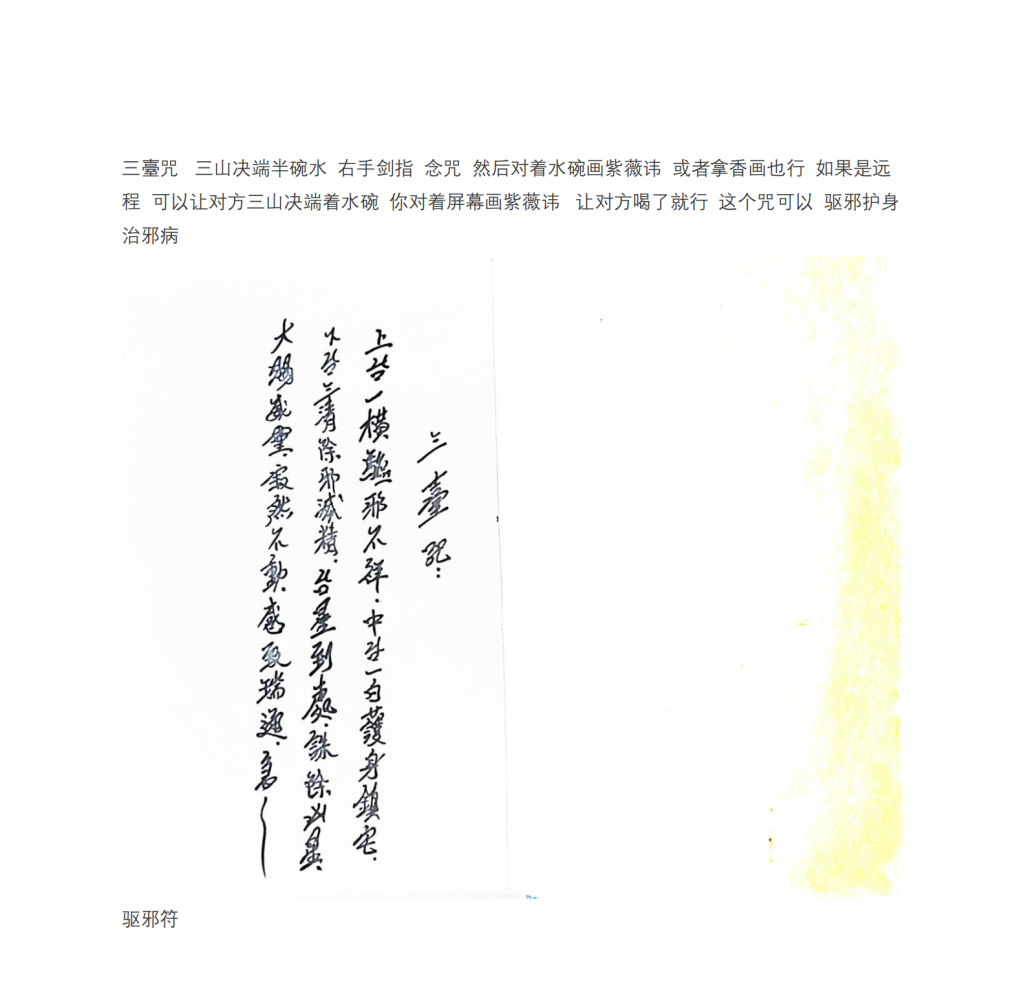 三臺咒 三山决端半碗水 右手剑指 念咒 然后对着水碗画紫薇讳 或者拿香画也行 如果是远
程 可以让对方三山决端着水碗 你对着屏幕画紫薇讳 让对方喝了就行 这个咒可以 驱邪护身
治邪病
三臺咒：
上台一横驅邪不祥．中台一白護身鎮宅．
下台三清除邪滅精．台星到處．誅除凶星．
大賜威靈．寂然不動．感致瑞通．急
驱邪符